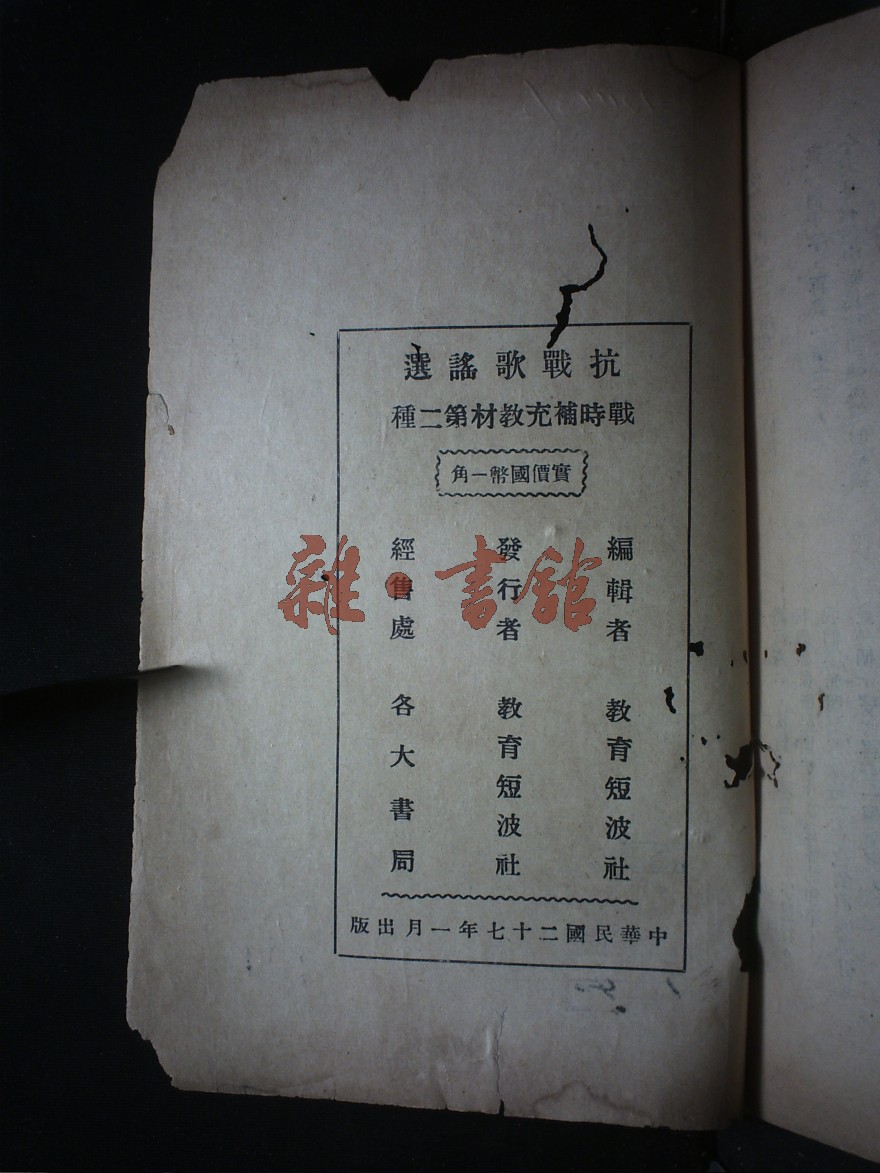 抗戰歌謠選
戰時補充教材第二種
實價國幣一角
編輯者 教育短波社
發行者 教育短波社
經售處 各大書局
中華民國二十七年一月出版
雜·書館